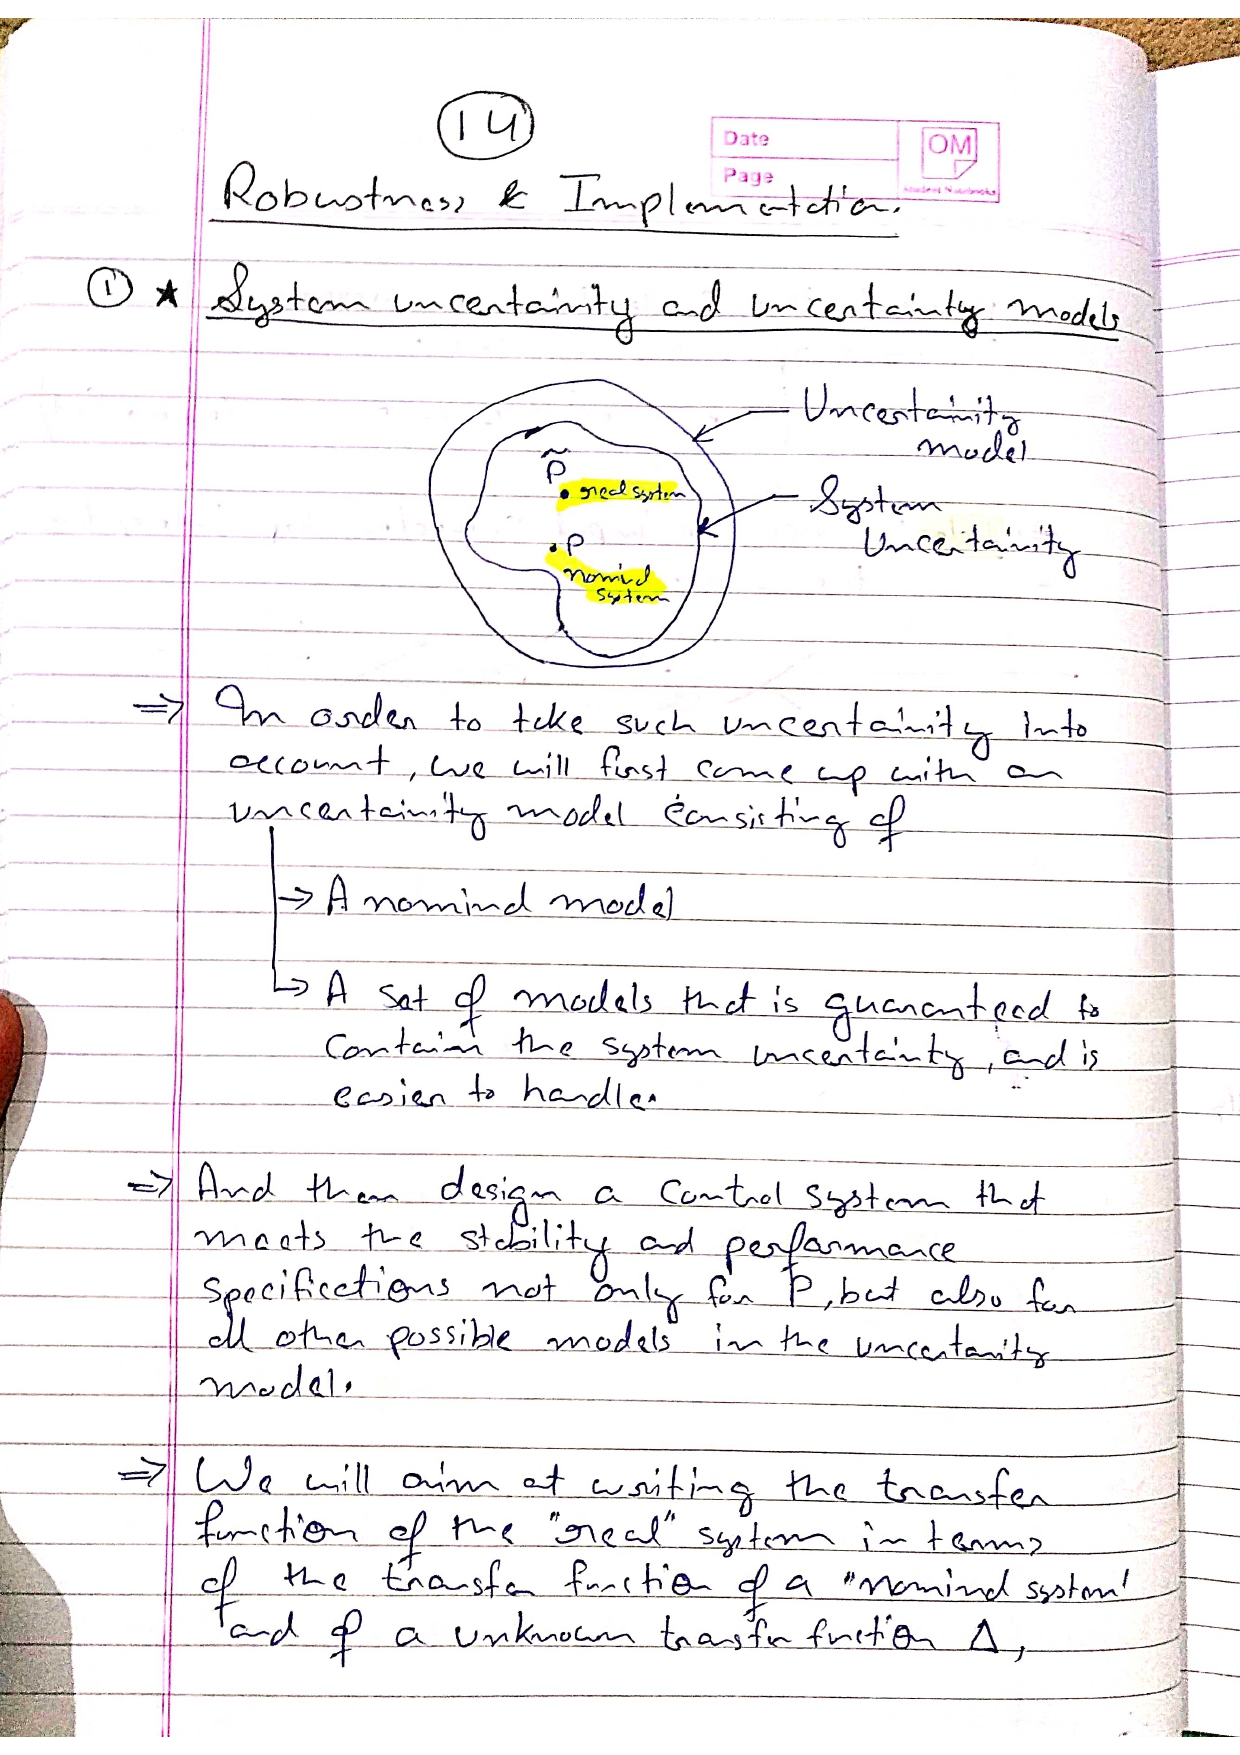 14
Date
OM
Page
Student Notebooks
Robustness & Implementation.
① ★ System uncertainity and uncertainty models
Uncertainity
model
P̃
• real system
System
Uncertainity
• P
nominal
system
⇒ In order to take such uncertainity into
account, we will first come up with an
uncertainity model consisting of
→ A nominal model
→ A set of models that is guaranteed to
contain the system uncertainty, and is
easier to handle.
⇒ And then design a control system that
meets the stability and performance
specifications not only for P, but also for
all other possible models in the uncertanity
model.
⇒ We will aim at writing the transfer
function of the "real" system in terms
of the transfer function of a "nominal system"
and of a unknown transfer function Δ,